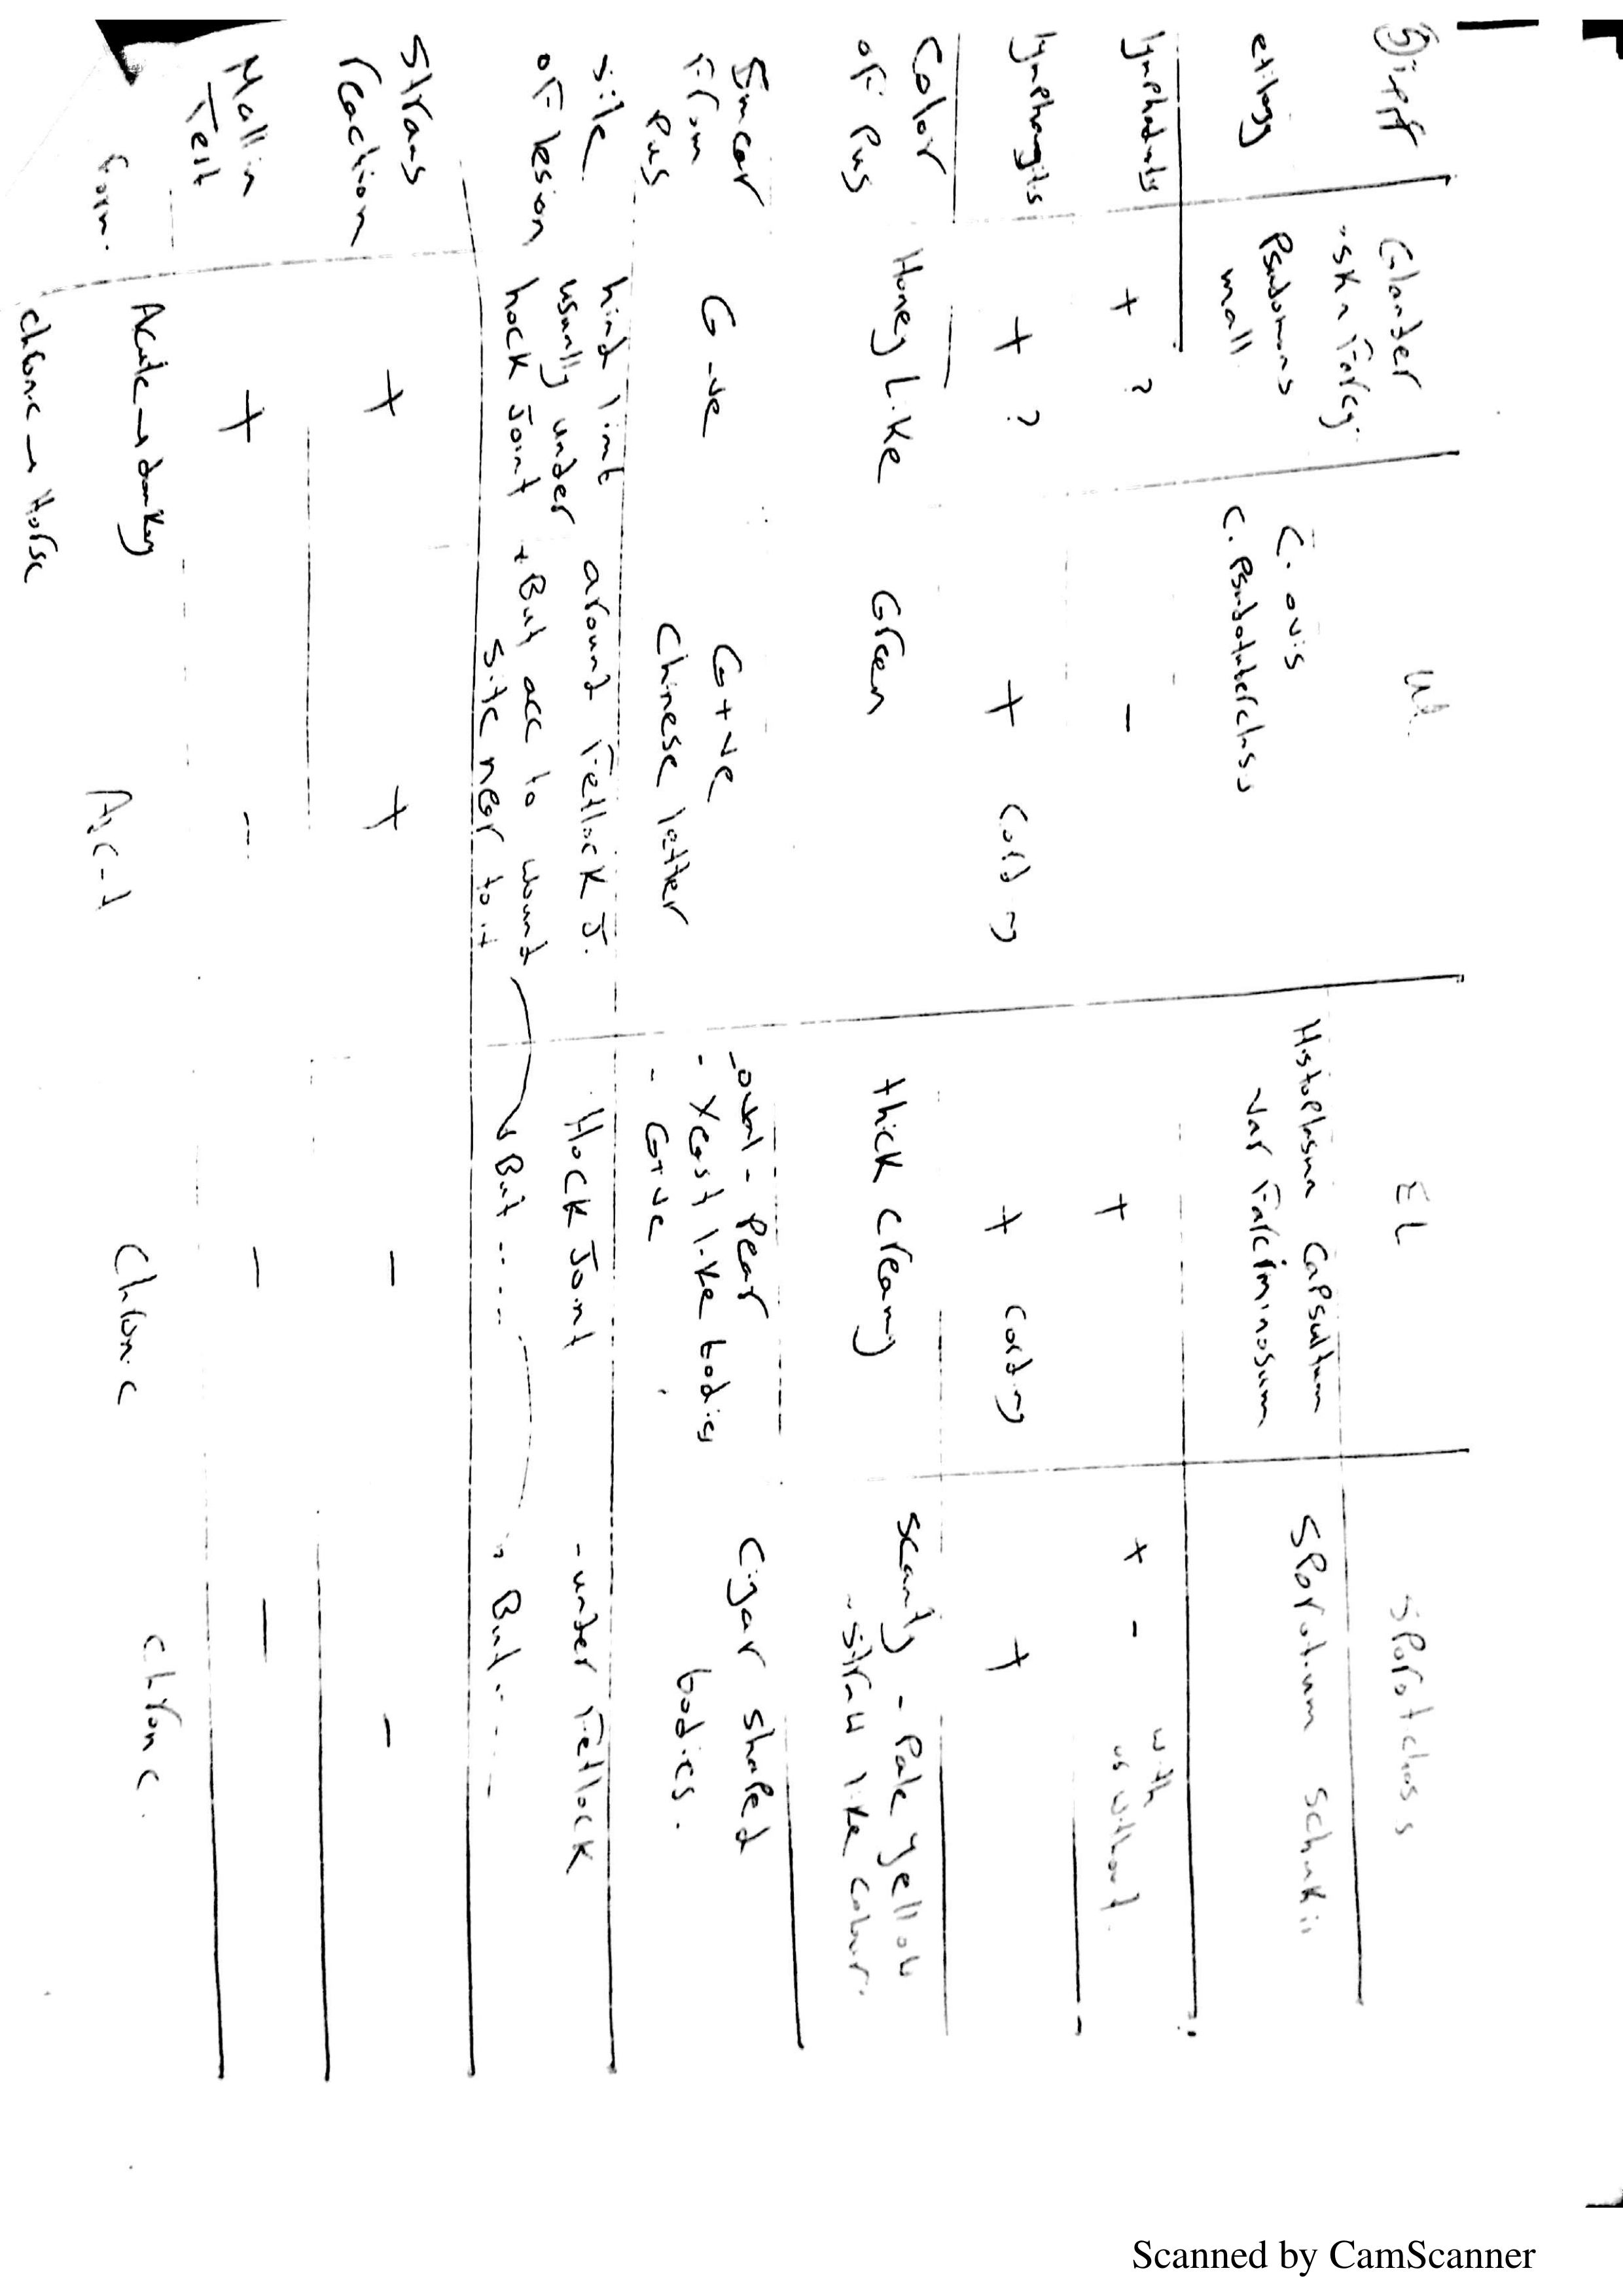 Diff
Glander
"skin Farcy"
UL
EL
Sporotchoss
etilogy
Psudomons
mall
C. ovis
C. Psudotubercloss
Histoplasma Capsultum
var Farciminosum
Sporotrium Schnkii
lymphadnty
+ ?
-
+
+ -
with
or without
lymphangits
+ ?
+ cording
+ cording
+
Color
of Pus
Honey Like
Green
thick creamy
scanty - Pale yellow
- straw like colour.
Smear
From
Pus
G -ve
G+ve
Chinese letter
- oval - Pear
- Yeast like bodies
- G+ve
Cigar shaped
bodies.
site
of lesion
hind limb
usually under
hock joint
around Fetlock J.
+ But acc to wound
site near to it
Hock Joint
But ....
- under Fetlock
" But ....
Straus
reaction
+
+
-
-
Mallin
Test
+
-
-
-
Form.
Acute → donkey
chronic → Horse
Chronic
chronic.
Scanned by CamScanner